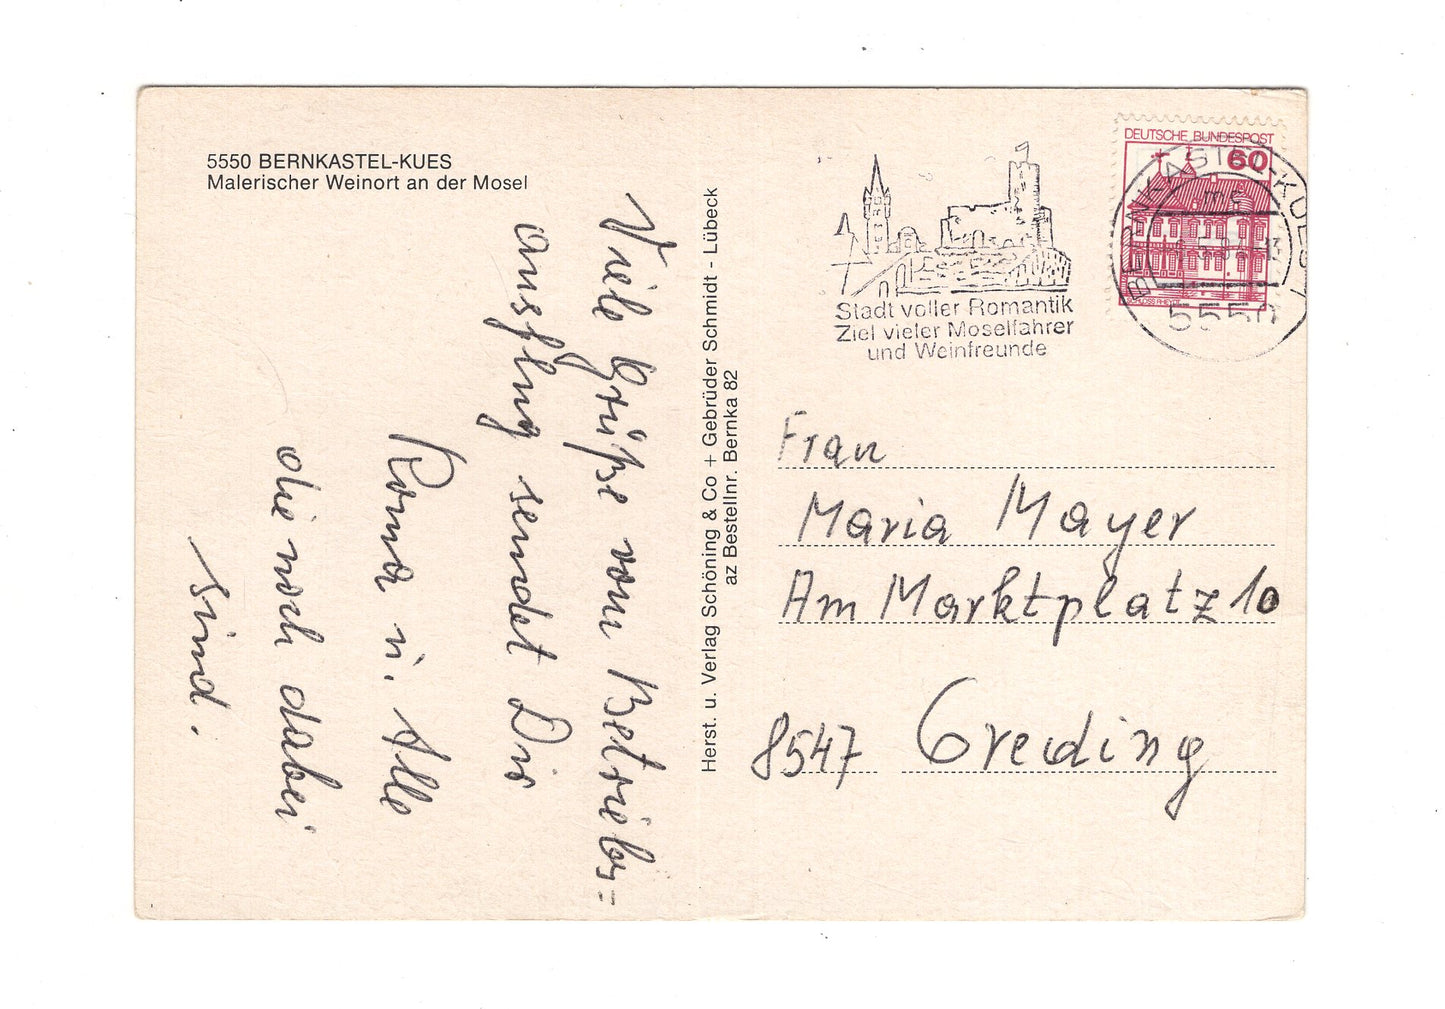 5550 BERNKASTEL-KUES
Malerischer Weinort an der Mosel
Viele Grüße vom Betriebs=
ausflug sendet Dir
Roma u. Alle
die noch dabei
sind.
Herst. u. Verlag Schöning & Co + Gebrüder Schmidt - Lübeck
az Bestellnr. Bernka 82
Stadt voller Romantik
Ziel vieler Moselfahrer
und Weinfreunde
DEUTSCHE BUNDESPOST
60
BERNKASTEL-KUES 1
mc
5.84-13
5550
Frau
Maria Mayer
Am Marktplatz 10
8547 Greding